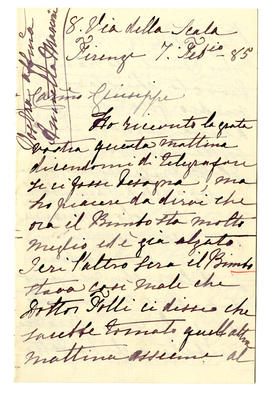 8. Via della Scala
Firenze 7. Febio. 85
Carino Giuseppe
Ho ricevuto la grata
vostra questa mattina
dicendomi di telegrafare
se ci fosse bisogna, ma
ho piacere da dirvi che
ora il Bimbo sta molto
meglio ed è già alzato.
Ieri l'altro sera il Bimbo
stava così male che
Dottor Folli ci disse che
sarebbe tornato quell'altra
mattina assieme al